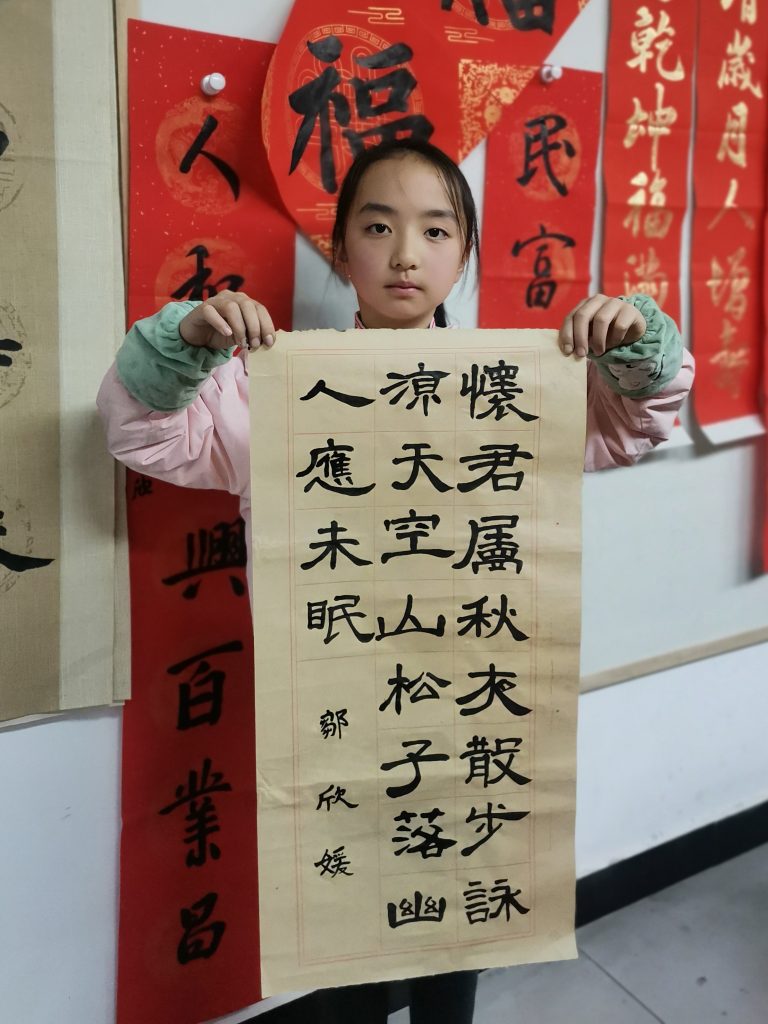 懷君屬秋夜散步詠
凉天空山松子落幽
人應未眠
鄒欣媛
福
福
人和
興百業昌
民富
乾坤福滿
歲月人增壽